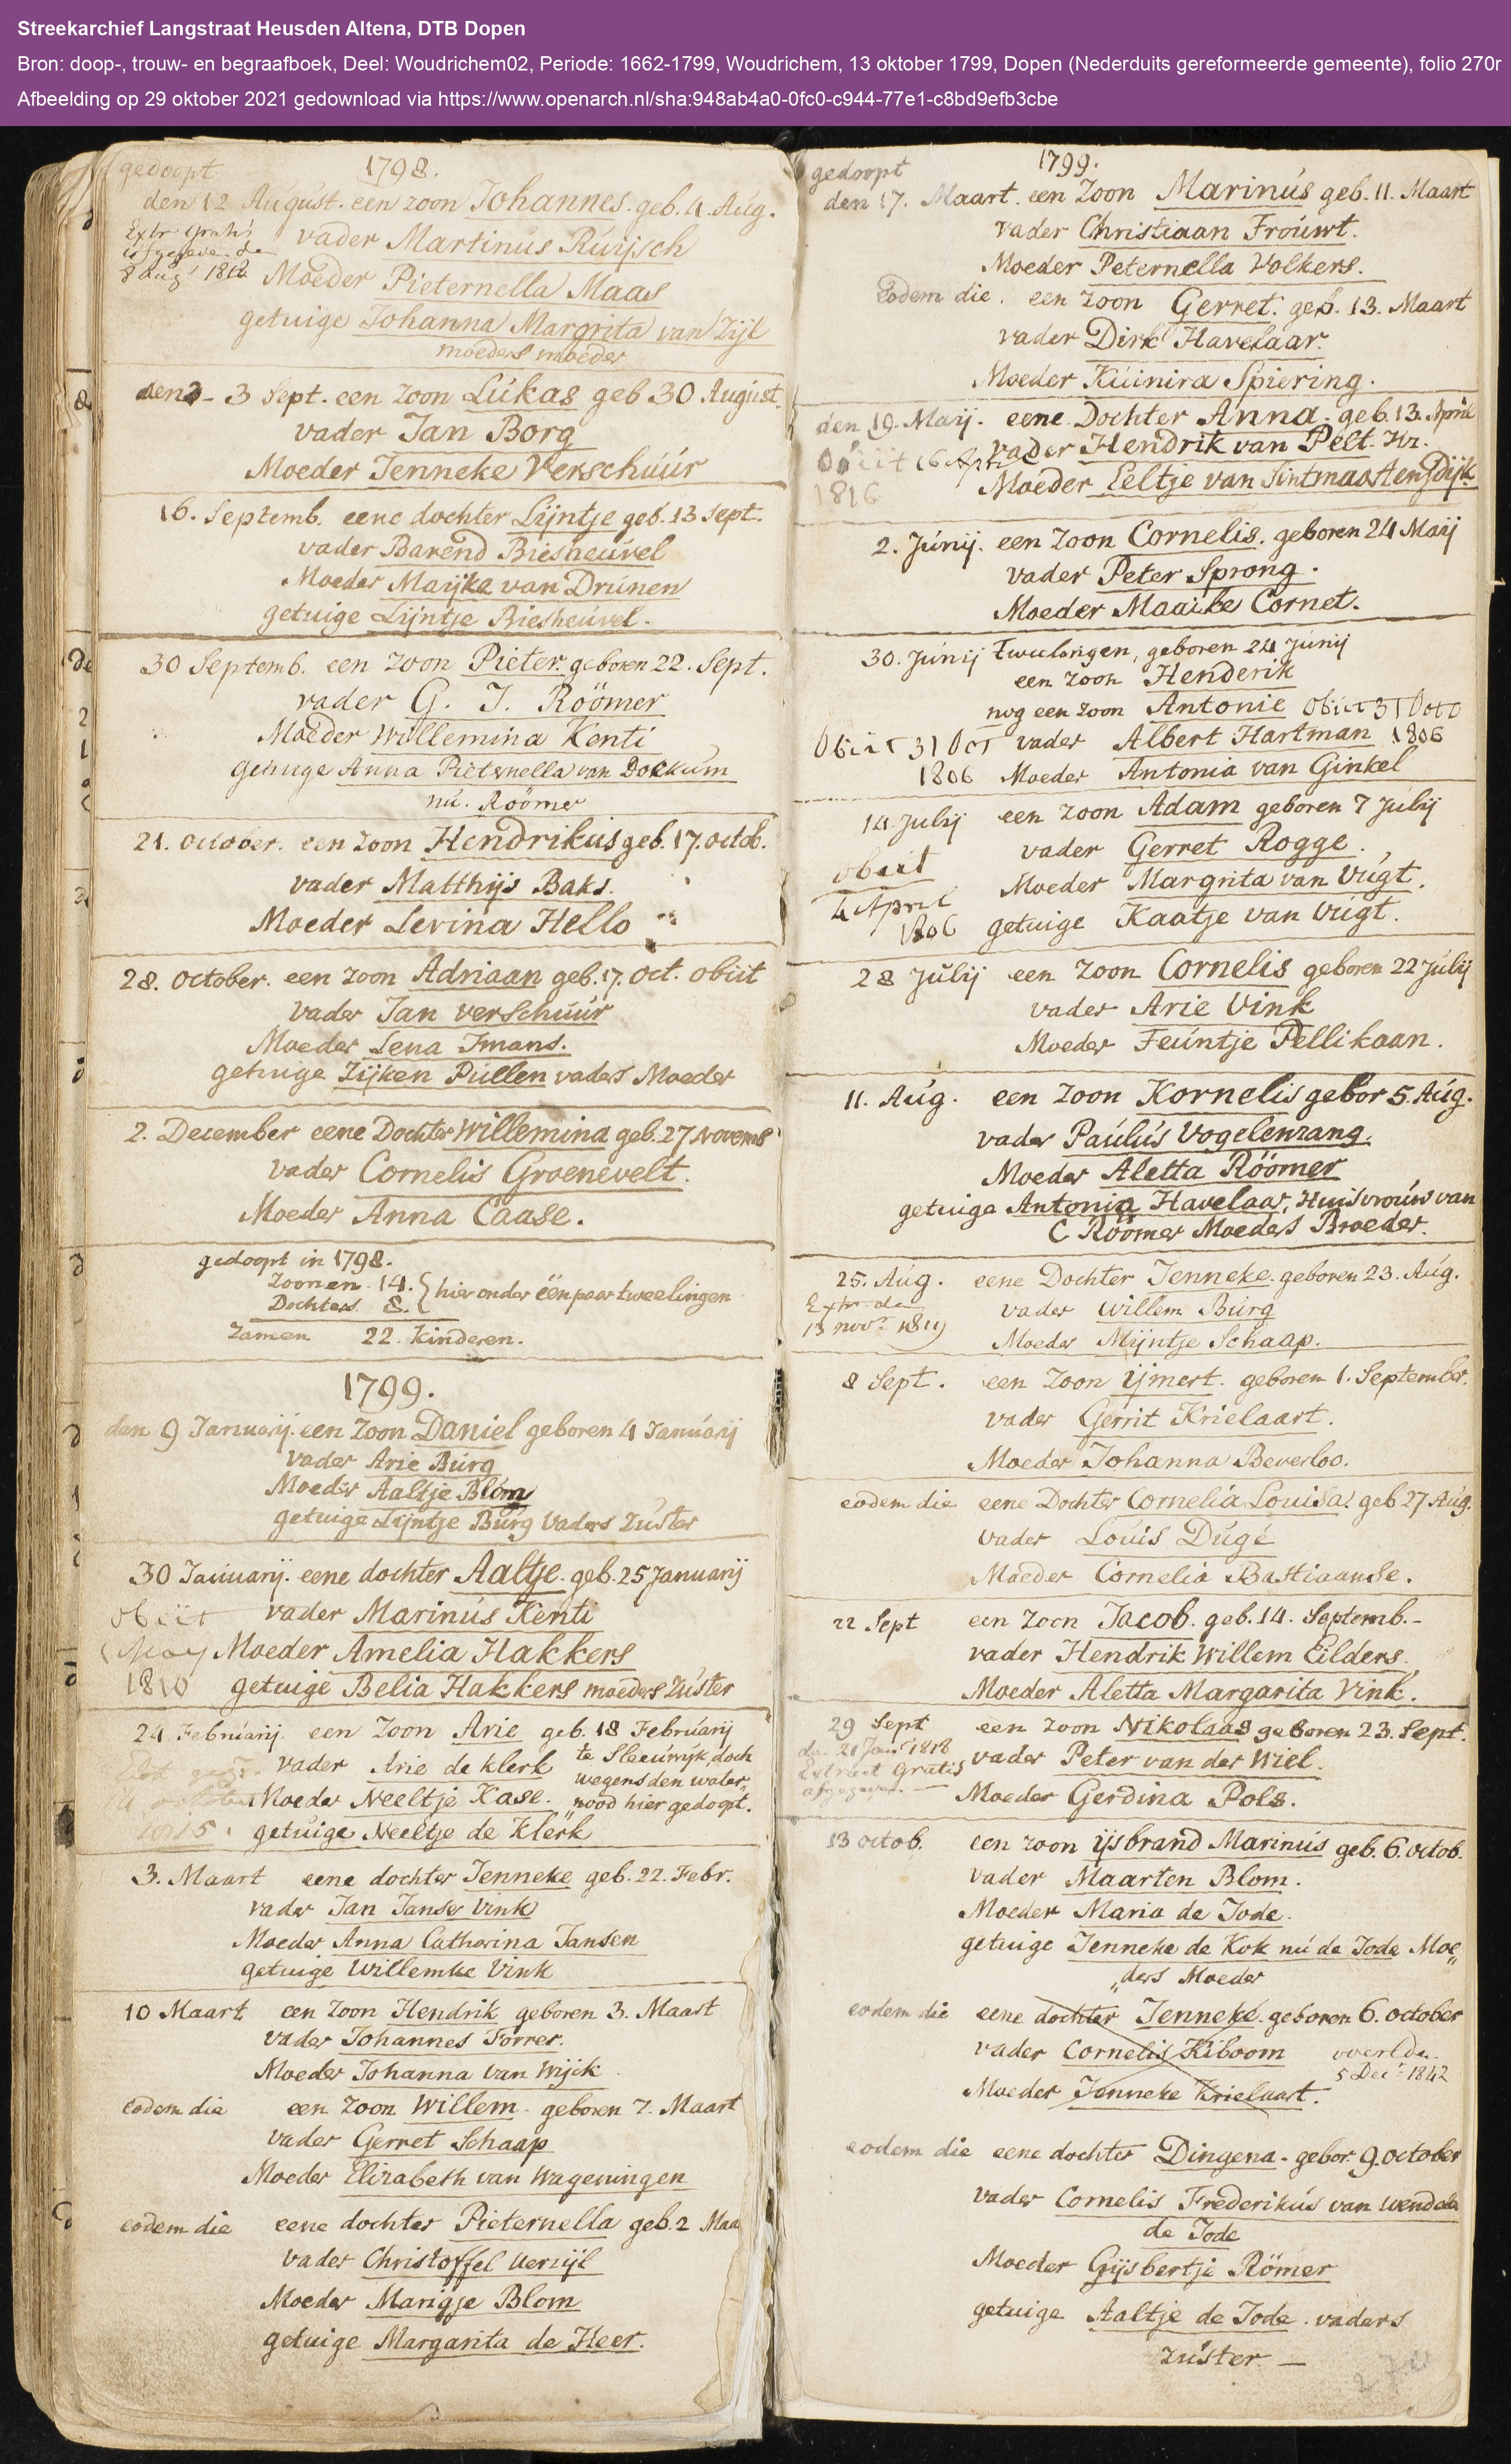 Streekarchief Langstraat Heusden Altena, DTB Dopen
Bron: doop-, trouw- en begraafboek, Deel: Woudrichem02, Periode: 1662-1799, Woudrichem, 13 oktober 1799, Dopen (Nederduits gereformeerde gemeente), folio 270r
Afbeelding op 29 oktober 2021 gedownload via https://www.openarch.nl/sha:948ab4a0-0fc0-c944-77e1-c8bd9efb3cbe
gedoopt 1798.
den 12 August. een zoon Johannes. geb. 4. Aug.
vader Martinus Ruijsch
8 aug 1812 Moeder Pieternella Maas
getuige Johanna Margrita van Zijl
moeders moeder
3 Sept. een zoon Lukas geb 30 August.
vader Jan Borg
Moeder Jenneke Verschuur
16. Septemb. eene dochter Lijntje geb. 13 Sept.
vader Barend Biesheuvel
Moeder Maijke van Drunen
getuige Lijntje Biesheuvel.
30 Septemb. een zoon Pieter. geboren 22. Sept.
vader G. J. Röömer
Moeder Willemina Kenti
getuige Anna Pieternella van Dockum
nu. Röömer
21. october. een zoon Hendrikus geb. 17. octob.
vader Matthijs Baks.
Moeder Levina Hello
28. October. een zoon Adriaan geb. 17. Oct. obiit
vader Jan verschuur
Moeder Lena Imans.
getuige Zijken Pullen vaders Moeder
2. December eene Dochter Willemina geb. 27 Novemb
vader Cornelis Groenevelt.
Moeder Anna Caase.
gedoopt in 1798.
Zoonen 14. hier onder één paar tweelingen
Dochters 8.
Zamen 22. Kinderen.
1799.
den 9 Januarij. een zoon Daniel geboren 4 Januarij
vader Arie Burg
Moeder Aaltje Blom
getuige Lijntje Burg Vaders Zuster
30 Januarij. eene dochter Aaltje. geb. 25 Januarij
obiit vader Marinus Kenti
Maij Moeder Amelia Hakkers
1810 getuige Belia Hakkers moeders Zuster
24 Februarij. een Zoon Arie geb. 18 Februarij
vader Arie de klerk te Sleeuwijk, doch
wegens den water„
Moeder Neeltje Kase. „nood hier gedoopt.
getuige Neeltje de Klerk
3. Maart eene dochter Jenneke geb. 22. Febr.
vader Jan Janse Vink
Moeder Anna Catharina Jansen
getuige Willemke Vink
10 Maart een Zoon Hendrik geboren 3. Maart
vader Johannes Forrer.
Moeder Johanna van Wijck
eodem die een Zoon Willem. geboren 7. Maart
vader Gerret Schaap
Moeder Elizabeth van Wageningen
eodem die eene dochter Pieternella geb. 2 Maa
vader Christoffel Uerzijl
Moeder Marigje Blom
getuige Margarita de Heer.
gedoopt 1799.
den 17. Maart. een zoon Marinus geb. 11. Maart
vader Christiaan Frouwt.
Moeder Peternella Volkers.
Eodem die. een zoon Gerret. geb. 13. Maart
vader Dirk Havelaar.
Moeder Kuinira Spiering.
den 19. Maij. eene Dochter Anna. geb. 13. April
Obiit 16 Apr vader Hendrik van Pelt. Hz.
1816 Moeder Eeltje van Sintmaartensdijk
2. Junij. een zoon Cornelis. geboren 24 Maij
vader Peter Sprong.
Moeder Maaike Cornet.
30. Junij Tweelingen, geboren 24 Junij
een zoon Henderik
nog een zoon Antonie Obiit 31 Octo
Obiit 31 Oct vader Albert Hartman 1806
1806 Moeder Antonia van Ginkel
14. Julij een zoon Adam geboren 7 Julij
vader Gerret Rogge.
obiit Moeder Margrita van Vugt.
4 April
1806 getuige Kaatje van Vugt.
28 Julij een zoon Cornelis geboren 22 Julij
vader Arie Vink
Moeder Feuntje Pellikaan.
11. Aug. een zoon Kornelis gebor 5. Aug.
vader Paulus Vogelenzang.
Moeder Aletta Röömer
getuige Antonia Havelaar, Huisvrouw van
C Röömer Moeders Broeder.
25. Aug. eene Dochter Jenneke. geboren 23. Aug.
Extr. de vader Willem Burg
13 novr 1819 Moeder Mijntje Schaap.
8 Sept. een Zoon ijmert. geboren 1. September.
vader Gerrit Krielaart.
Moeder Johanna Beverloo.
eodem die eene Dochter Cornelia Louisa. geb 27 Aug.
vader Louis Dugé
Moeder Cornelia Bastiaanse.
22 Sept een Zoon Jacob. geb. 14. Septemb.-
vader Hendrik Willem Eilders.
Moeder Aletta Margarita Vink.
29 Sept een zoon Nikolaas geboren 23. Sept.
de 21 Jan 1818 vader Peter van der Wiel.
Extract Gratis
afgegeven. Moeder Gerdina Pols.
13 octob. een zoon ijsbrand Marinus geb. 6. octob.
vader Maarten Blom.
Moeder Maria de Jode.
getuige Jenneke de Kok nu de Jode Moe„
„ders Moeder
eodem die eene dochter Jenneke. geboren 6. october
vader Cornelis Kiboom overlde.
5 Decr 1842
Moeder Jenneke Krielaart.
eodem die eene dochter Dingena. gebor. 9. october
vader Cornelis Frederikus van Wendela
de Jode
Moeder Gijsbertje Römer
getuige Aaltje de Jode. vaders
zuster —